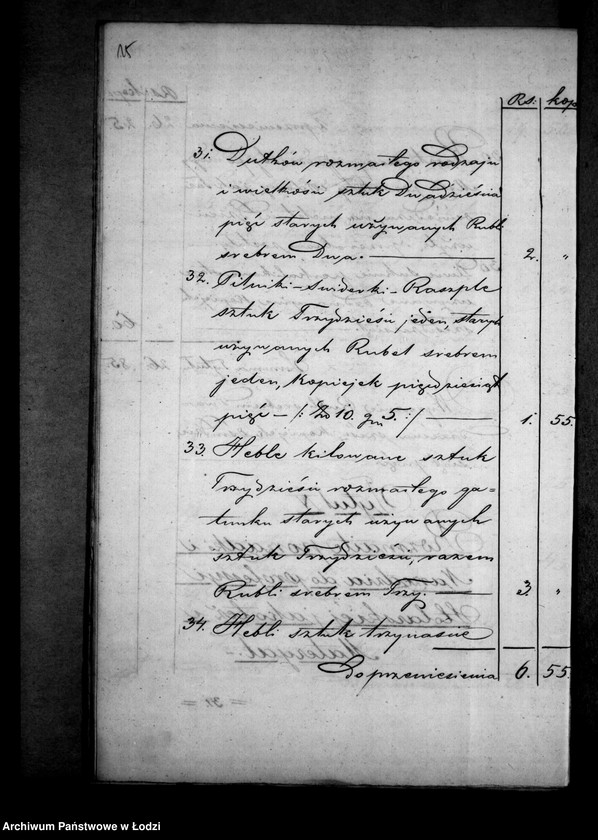 Rs. kop
31. Dutków rozmaitego rodzaju
i wielkości sztuk Dwadzieścia
pięć starych używanych Rubli
srebrem Dwa. — 2. "
32. Pilniki – Swiderki – Raszple
sztuk Trzydzieści jeden, starych
używanych Rubel srebrem
jeden, Kopiejek pięćdziesiąt
pięć – /: Zło 10. gr. 5. :/ — 1. 55.
33. Heble kilowane sztuk
Trzydzieści rozmaitego ga=
tunku starych używanych
sztuk Trzydzieści, razem
Rubli srebrem Trzy. — 3. "
34. Hebli sztuk trzynaście
Do przeniesienia 6. 55.
Archiwum Państwowe w Łodzi